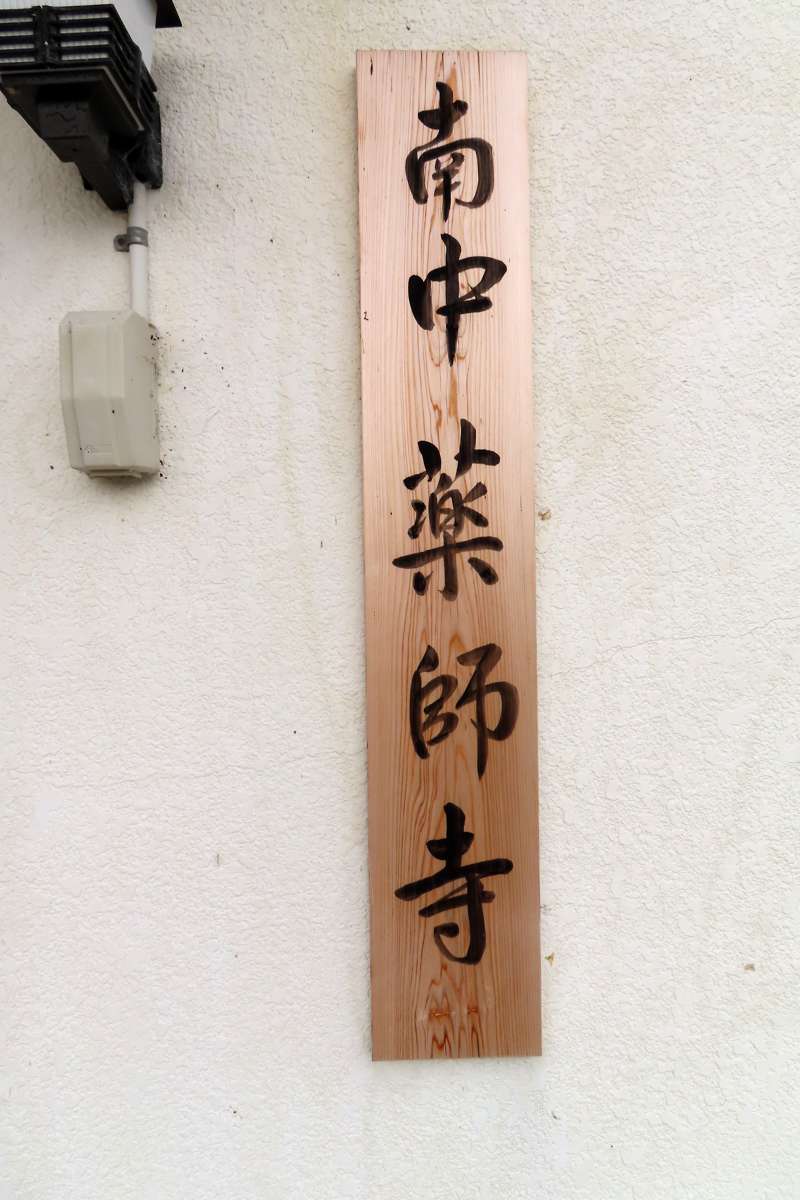 南中薬師寺